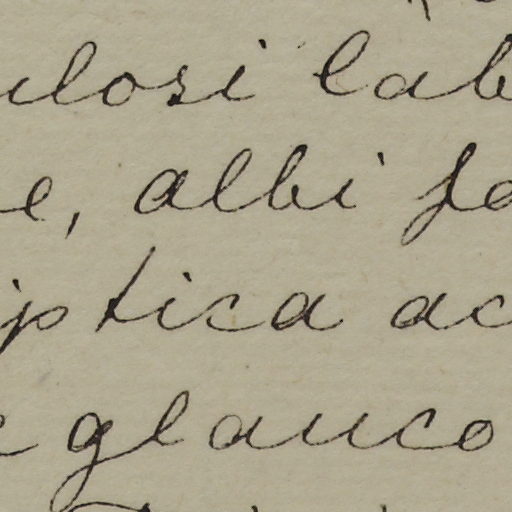 ulosi lab
e, albi fa
iptica ac
c glauco